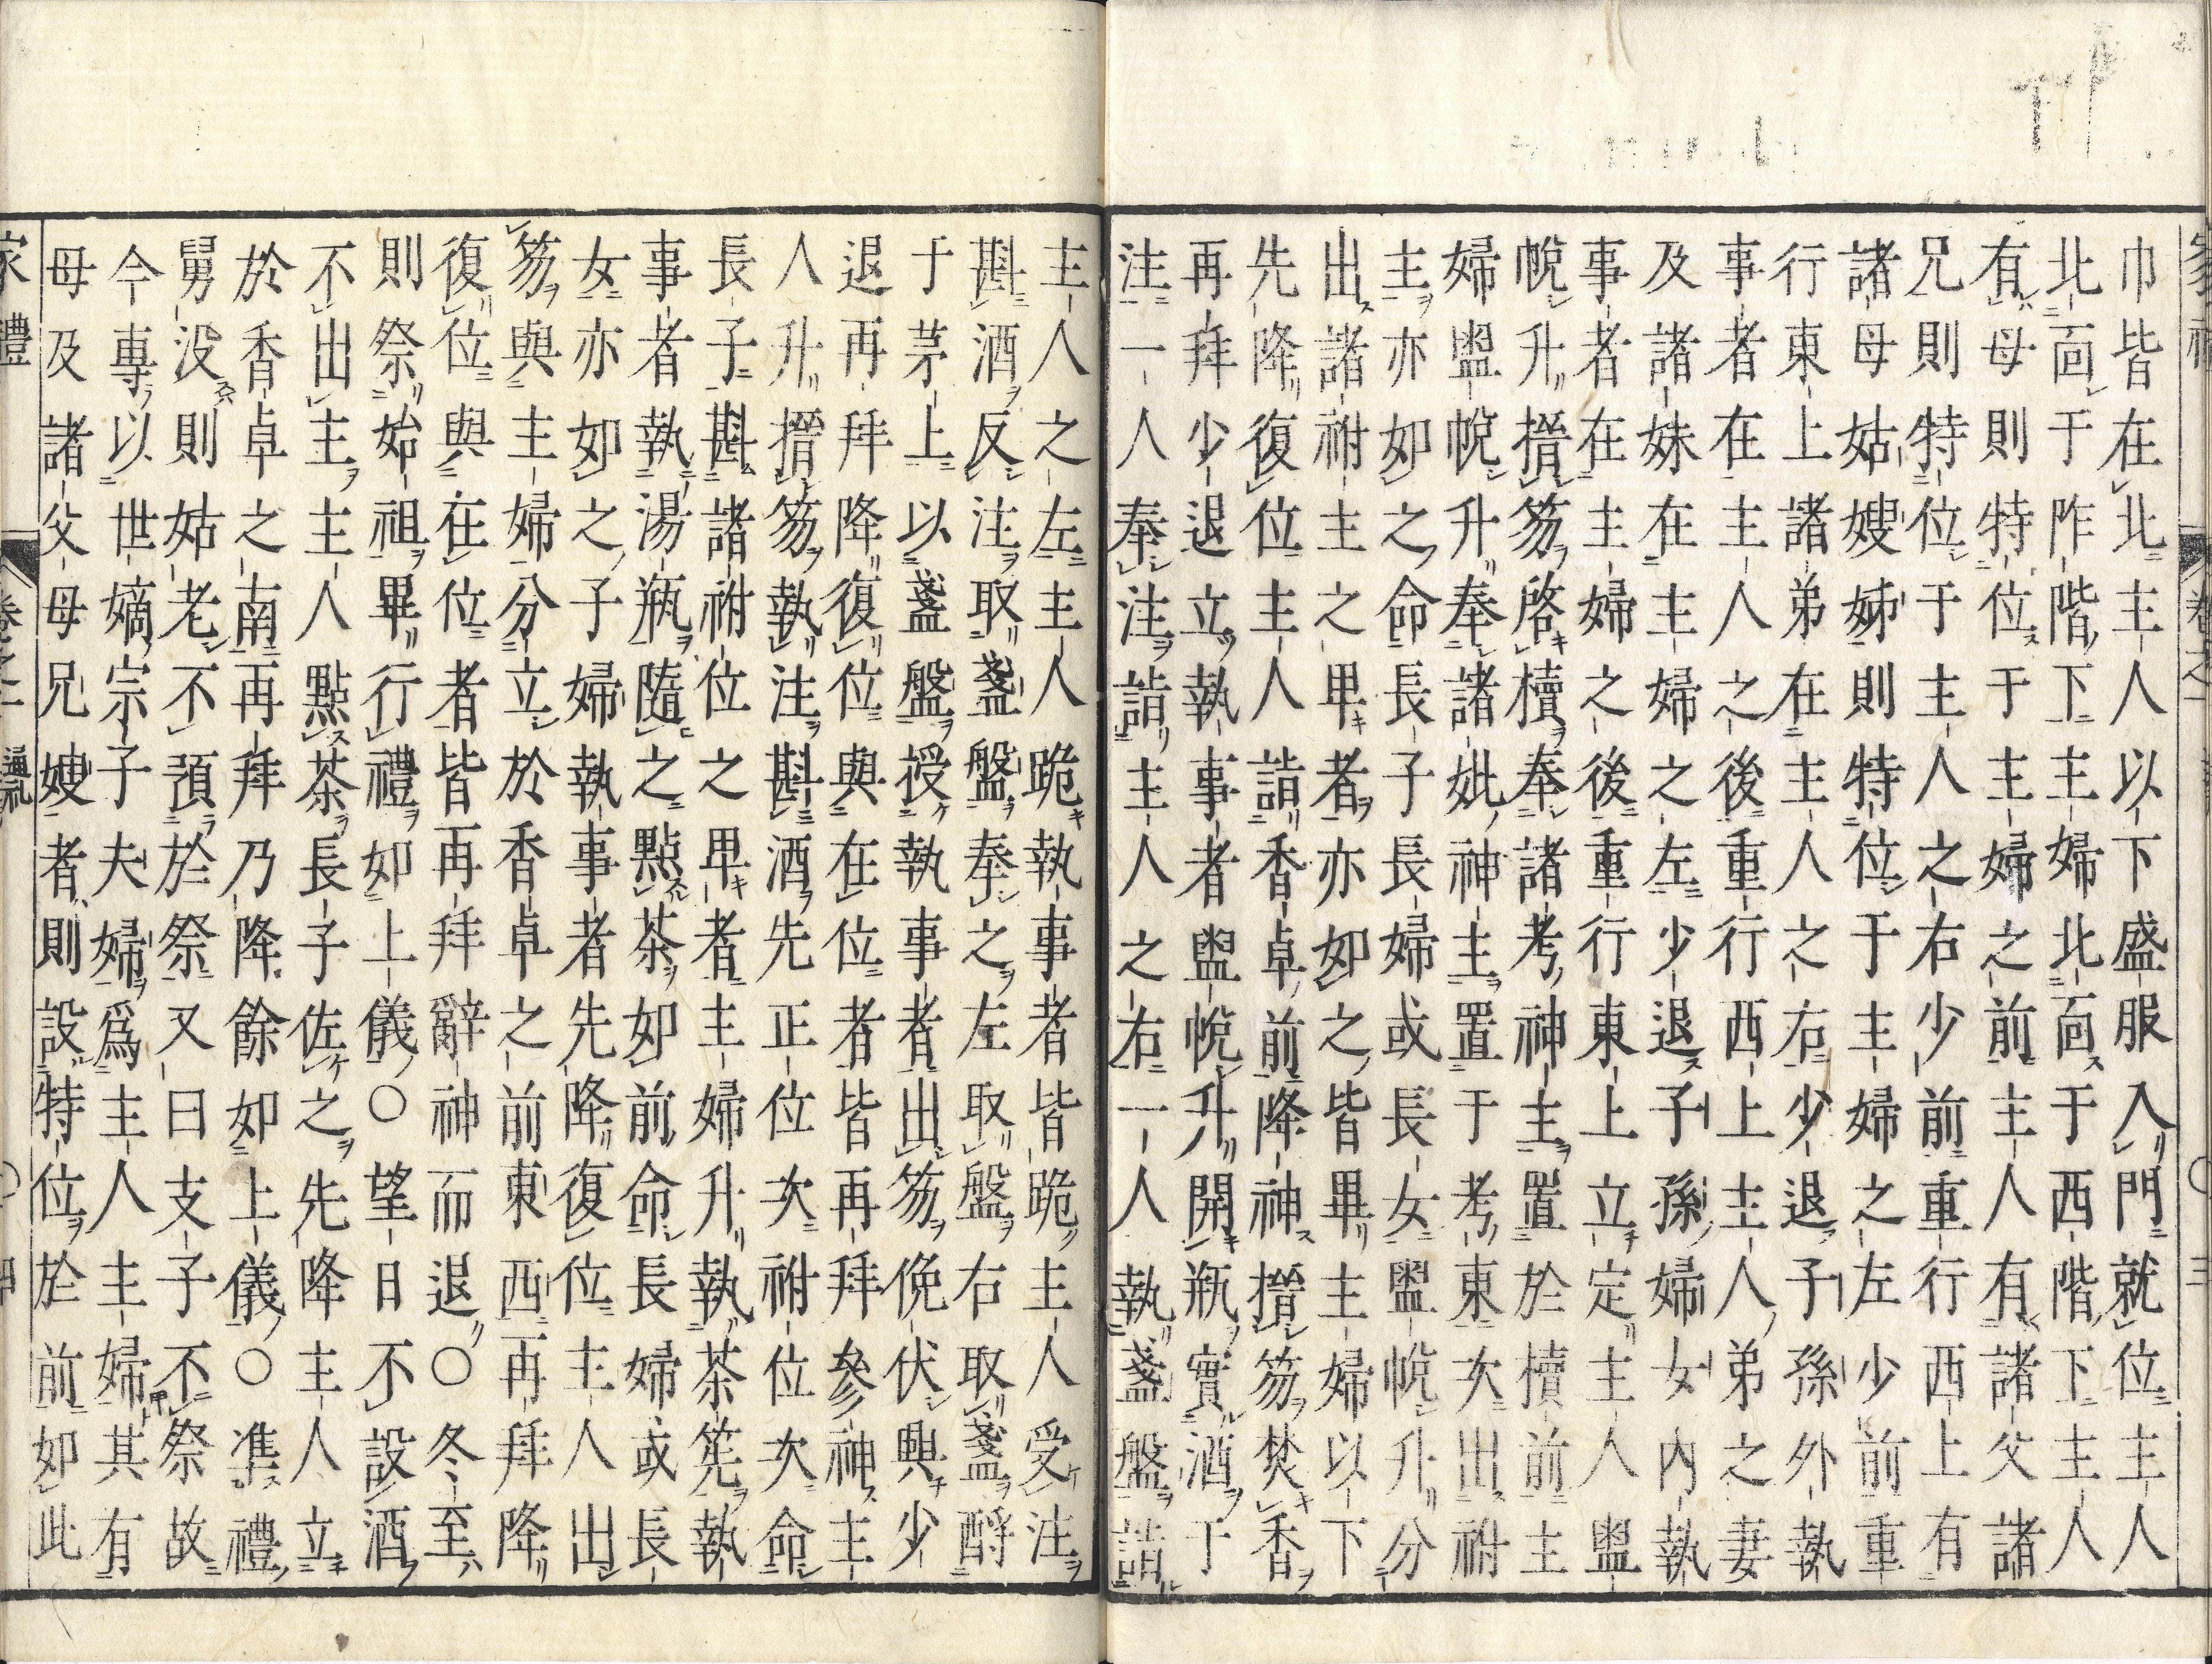 巾皆在北主人以下盛服入門就位主人
北面于阼階下主婦北面于西階下主人
有母則特位于主婦之前主人有諸父諸
兄則特位于主人之右少前重行西上有
諸母姑嫂姊則特位于主婦之左少前重
行東上諸弟在主人之右少退子孫外執
事者在主人之後重行西上主人弟之妻
及諸妹在主婦之左少退子孫婦女內執
事者在主婦之後重行東上立定主人盥
帨升搢笏啓櫝奉諸考神主置於櫝前主
婦盥帨升奉諸妣神主置于考東次出祔
主亦如之命長子長婦或長女盥帨升分
出諸祔主之卑者亦如之皆畢主婦以下
先降復位主人詣香卓前降神搢笏焚香
再拜少退立執事者盥帨升開瓶實酒于
注一人奉注詣主人之右一人執盞盤詣
主人之左主人跪執事者皆跪主人受注
斟酒反注取盞盤奉之左取盤右取盞酹
于茅上以盞盤授執事者出笏俛伏興少
退再拜降復位與在位者皆再拜參神主
人升搢笏執注斟酒先正位次祔位次命
長子斟諸祔位之卑者主婦升執茶筅執
事者執湯瓶隨之點茶如前命長婦或長
女亦如之子婦執事者先降復位主人出
笏與主婦分立於香卓之前東西再拜降
復位與在位者皆再拜辭神而退○冬至
則祭始祖畢行禮如上儀○望日不設酒
不出主主人點茶長子佐之先降主人立
於香卓之南再拜乃降餘如上儀○準禮
舅没則姑老不預於祭又曰支子不祭故
今專以世嫡宗子夫婦爲主人主婦其有
母及諸父母兄嫂者則設特位於前如此
家禮 卷之一 通禮